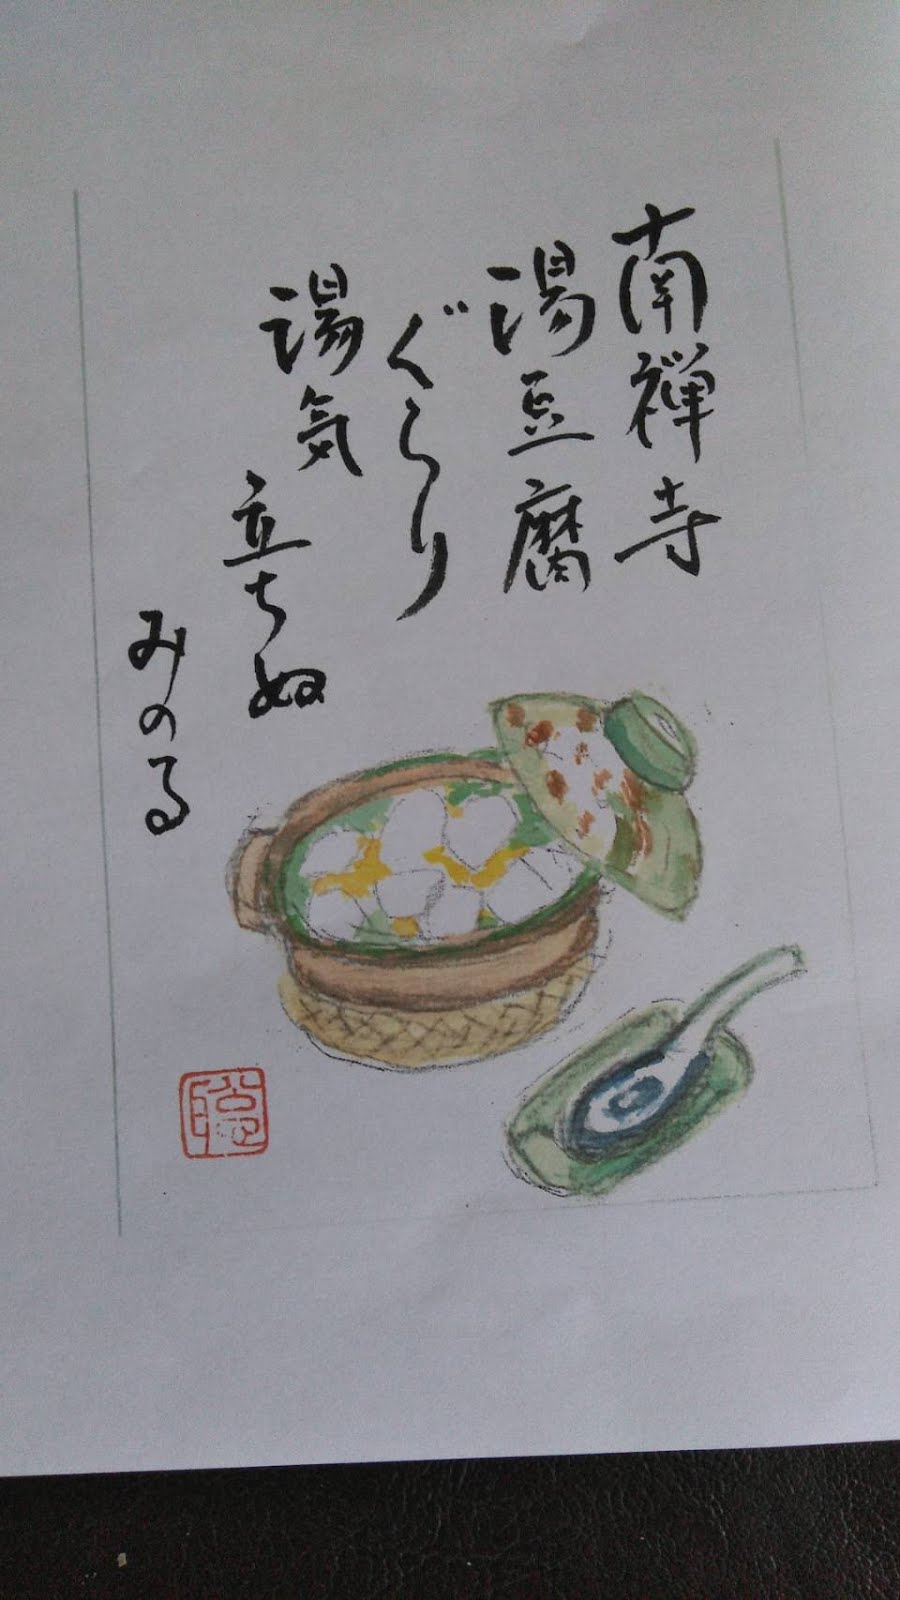 南禅寺
湯豆腐
ぐらり
湯気
立ちぬ
みのる